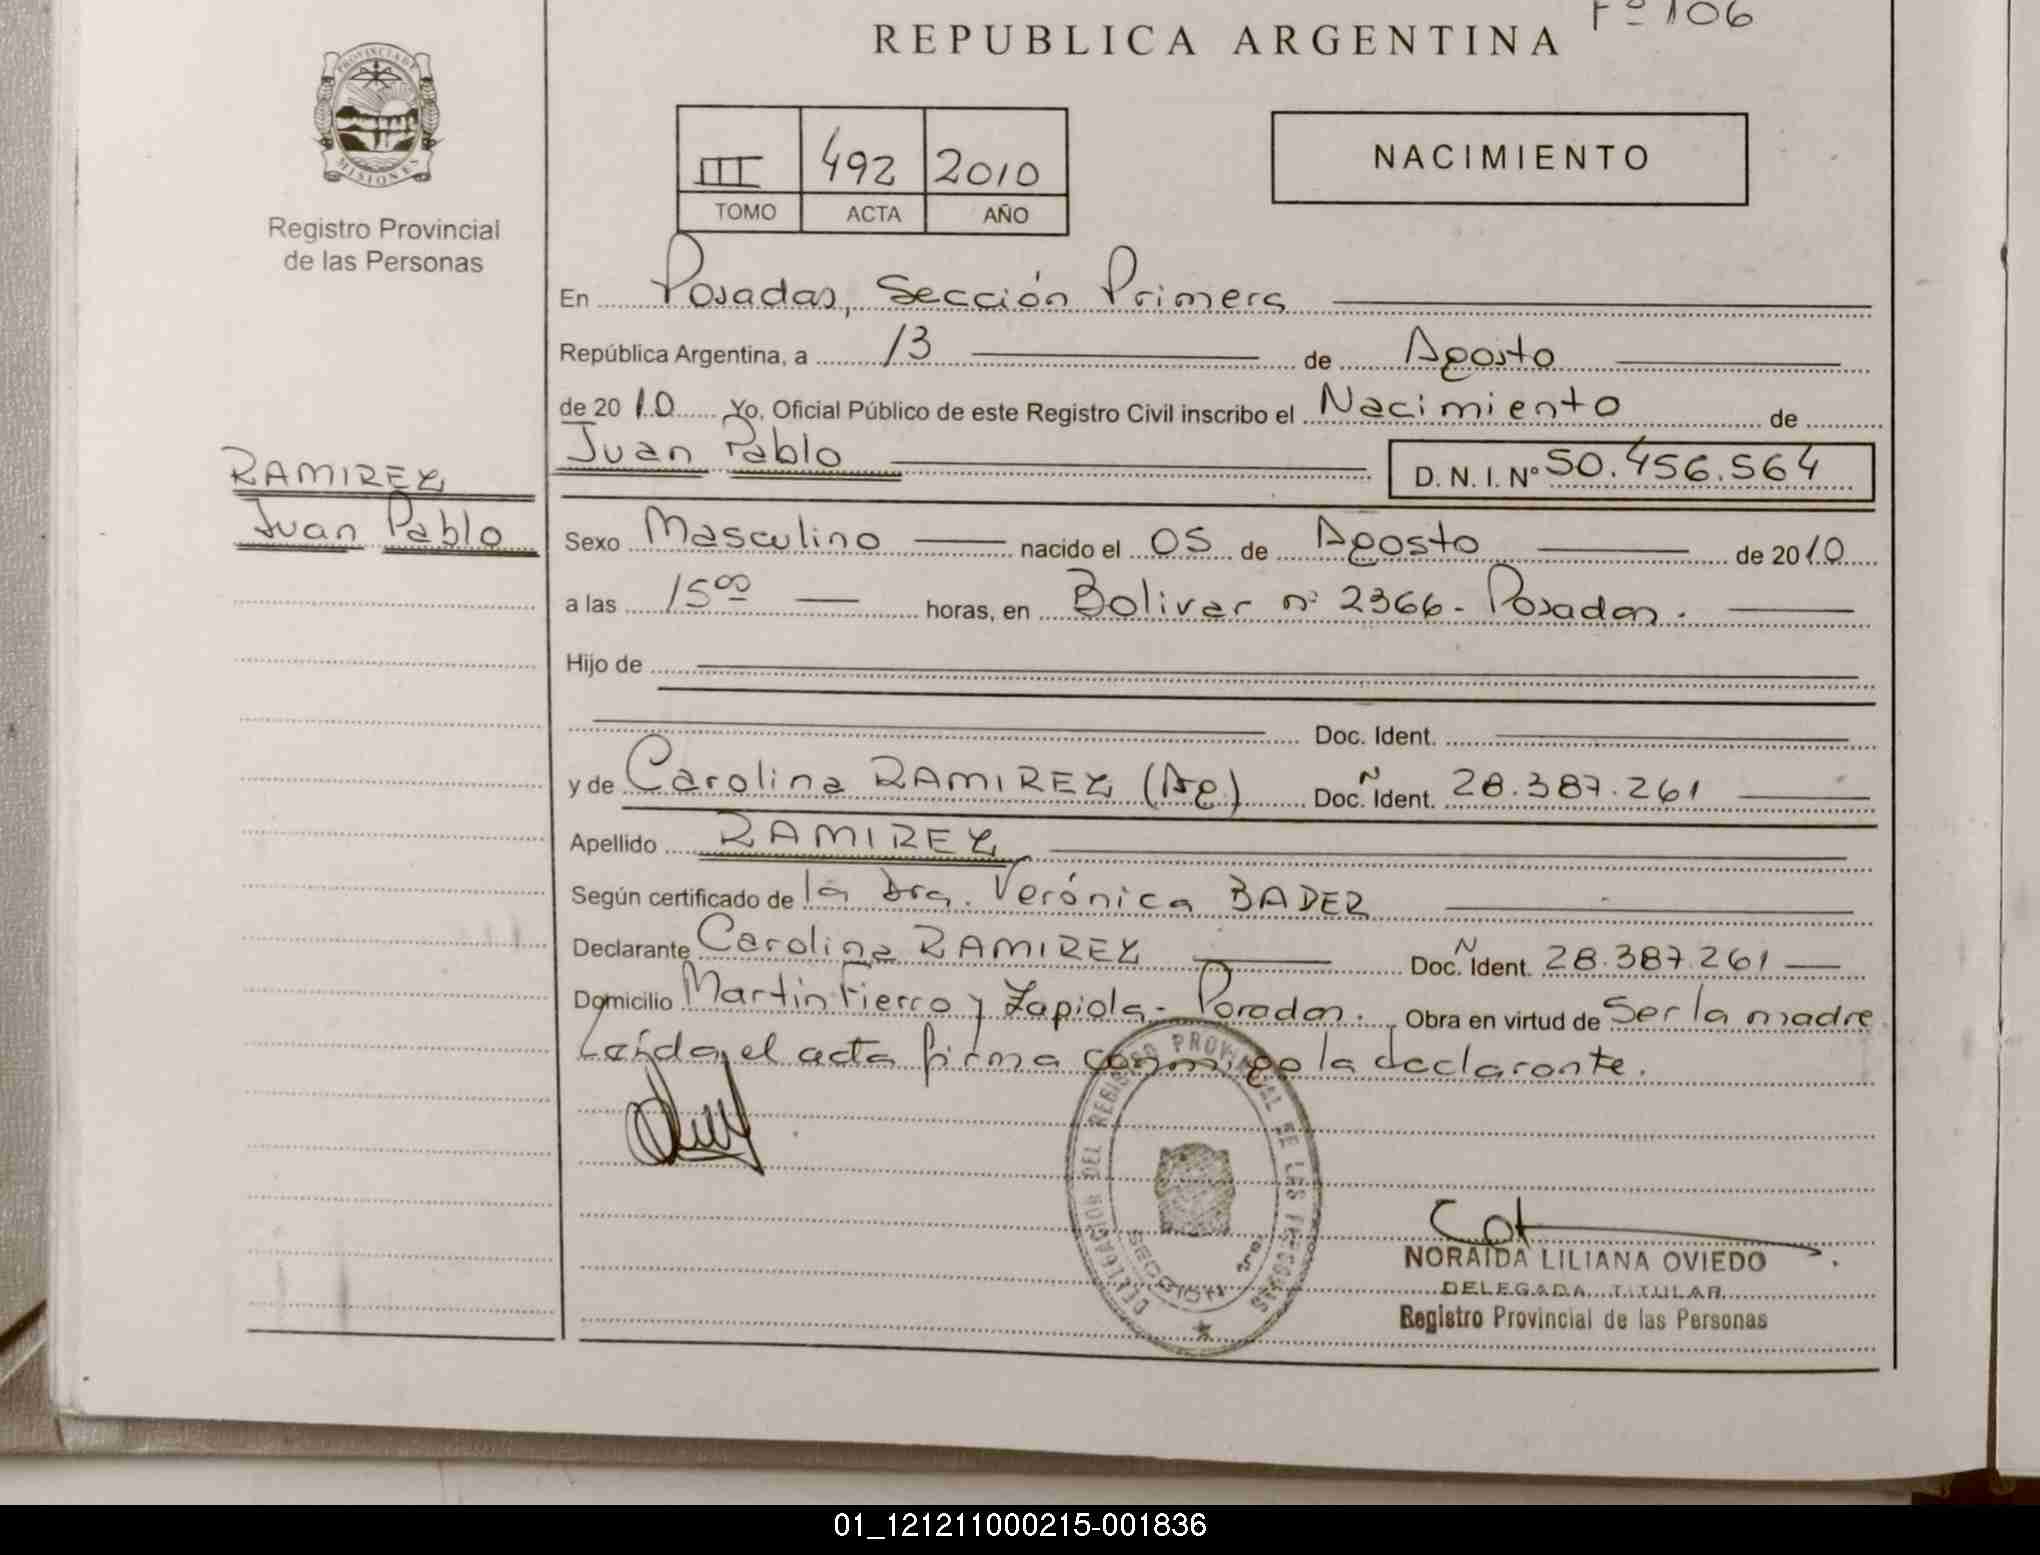 Fº 106
REPUBLICA ARGENTINA
PROVINCIA DE MISIONES
Registro Provincial
de las Personas
III 492 2010
TOMO ACTA AÑO
NACIMIENTO
En Posadas, Sección Primera
República Argentina, a 13 de Agosto
de 2010 Yo, Oficial Público de este Registro Civil inscribo el Nacimiento de
Juan Pablo D. N. I. Nº 50.456.564
RAMIREZ
Juan Pablo
Sexo Masculino nacido el 05 de Agosto de 2010
a las 15⁰⁰ horas, en Bolivar nº 2366- Posadas.
Hijo de
Doc. Ident.
y de Carolina RAMIREZ (Ag) Doc. Ident. 28.387.261
Apellido RAMIREZ
Según certificado de la Dra. Verónica BADER
Declarante Carolina RAMIREZ Doc. Ident. 28.387.261
Domicilio Martín Fierro y Zapiola- Posadas. Obra en virtud de Ser la madre
Leída el acta firma conmigo la declarante.
DELEGACION DEL REGISTRO PROVINCIAL DE LAS PERSONAS
SECCION 1ra.
NORAIDA LILIANA OVIEDO
DELEGADA TITULAR
Registro Provincial de las Personas
01_121211000215-001836